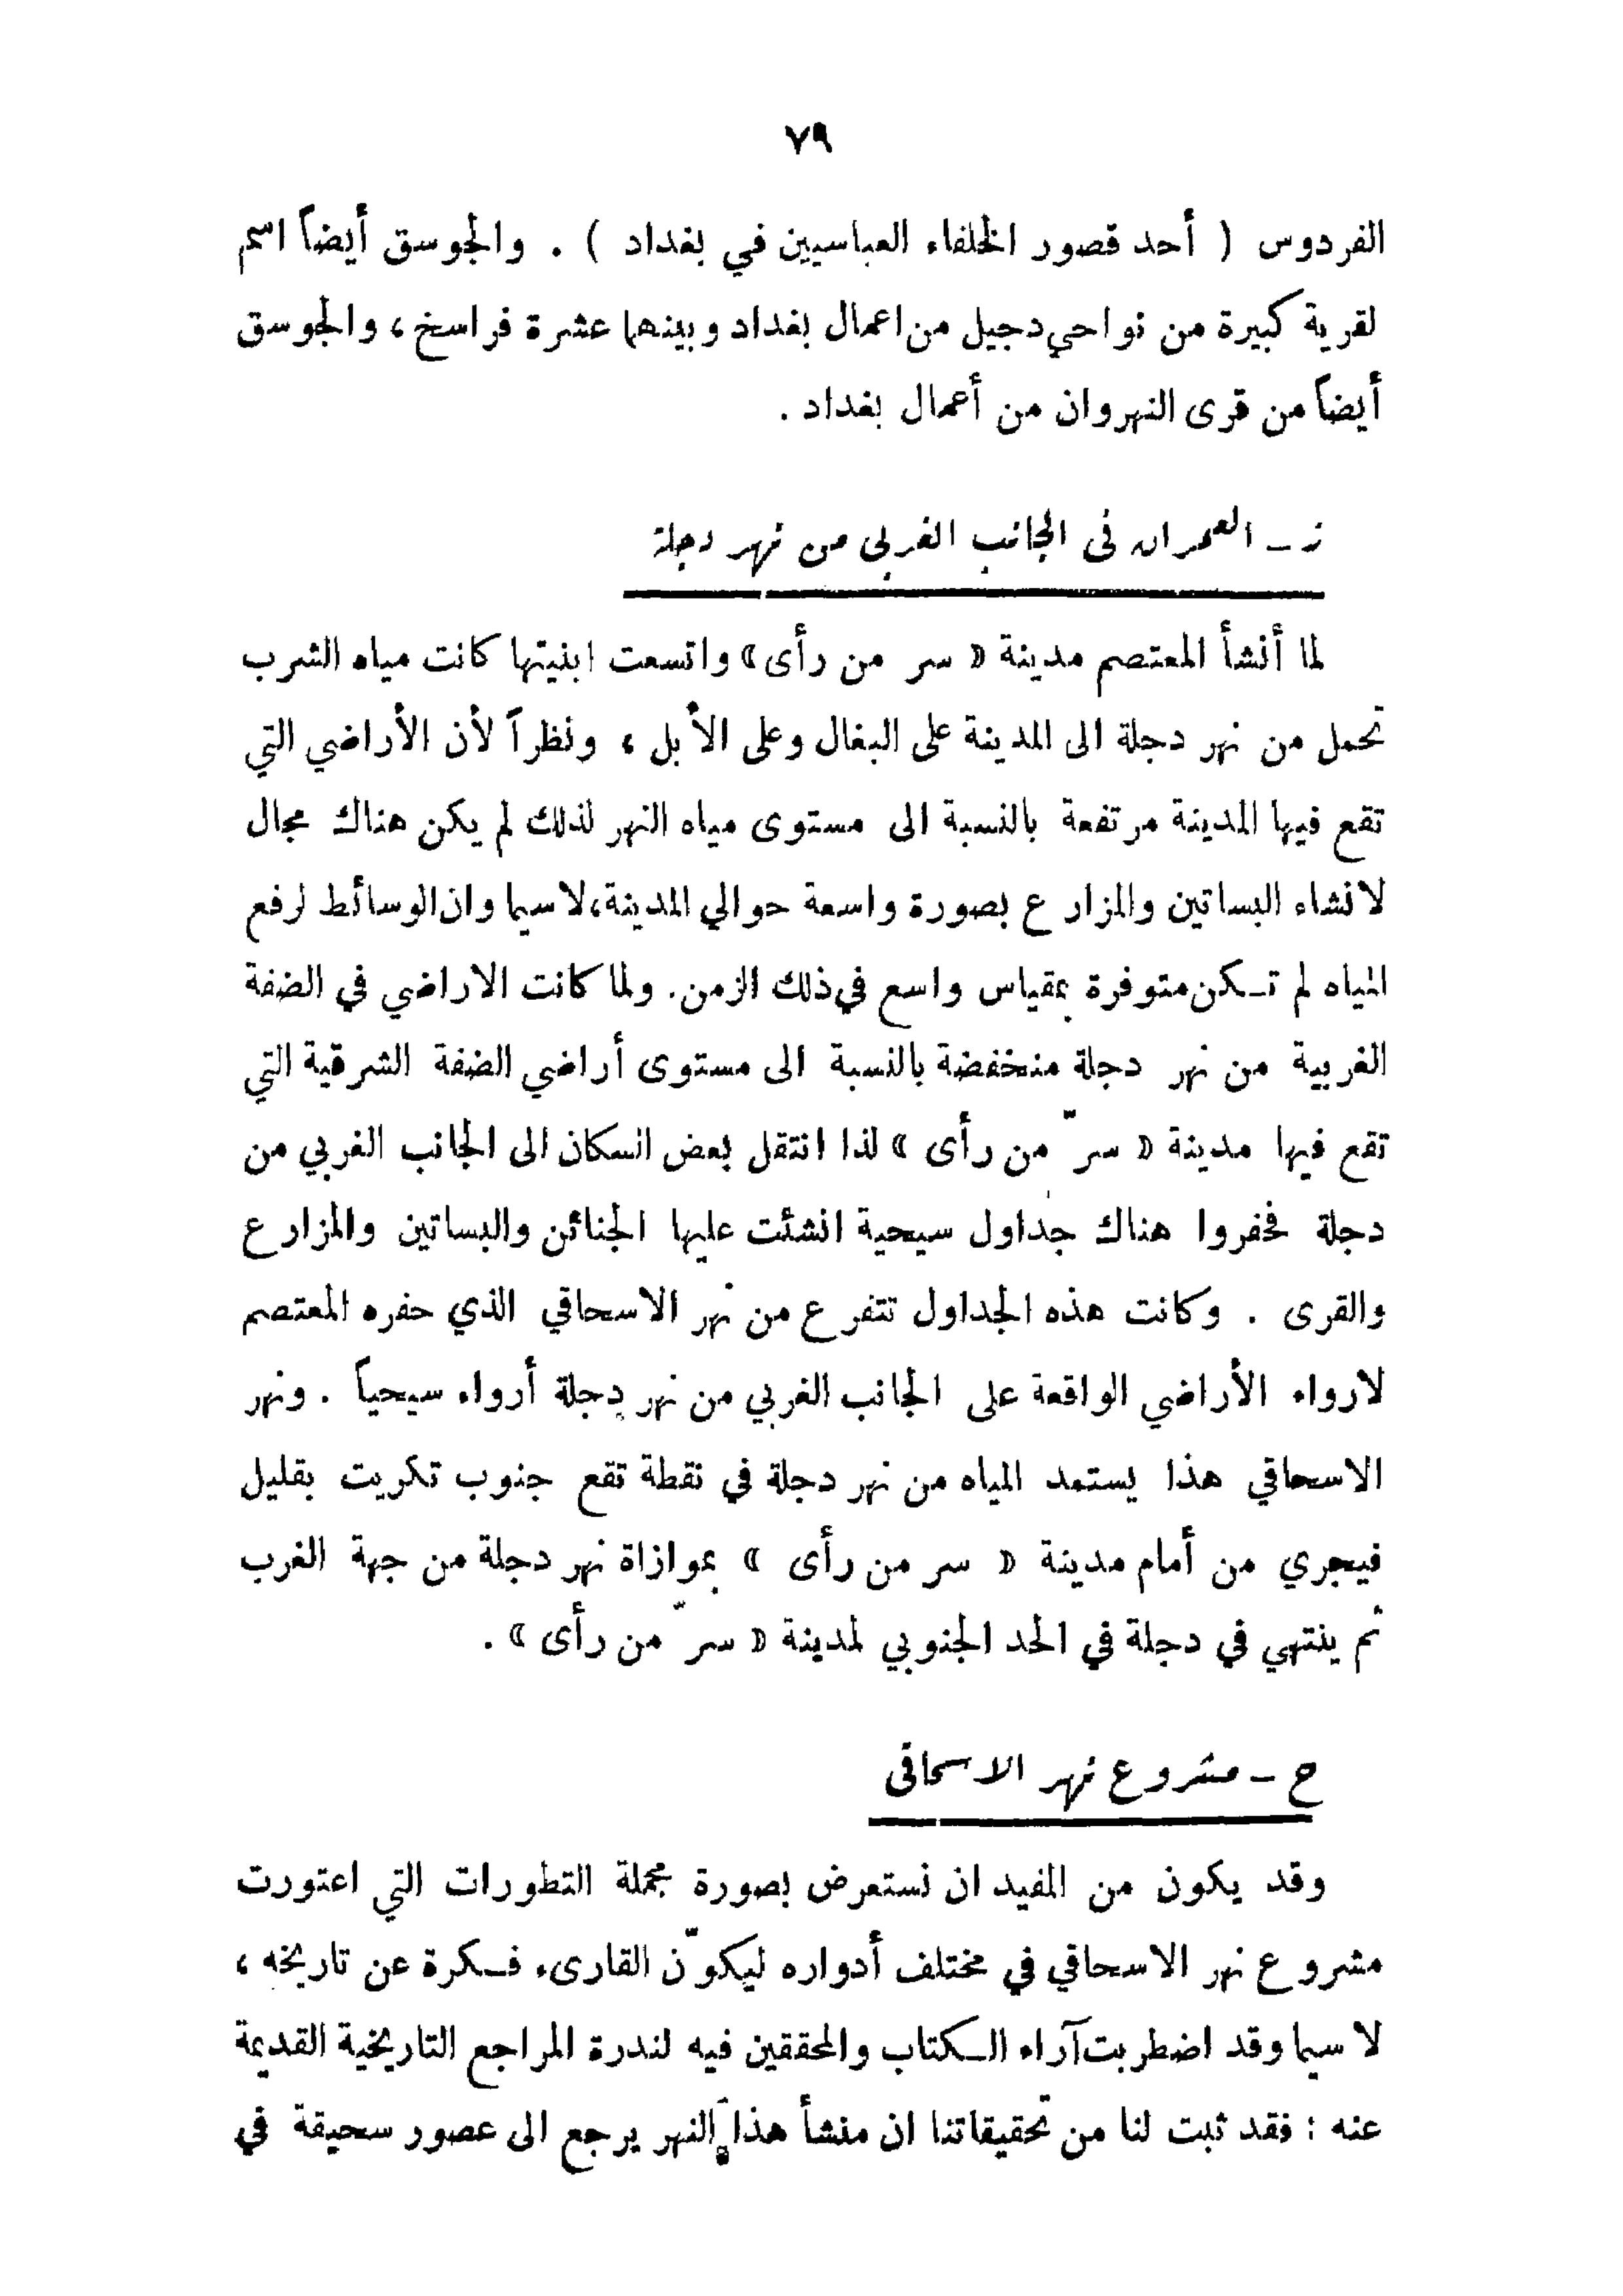 ٧٩
الفردوس ( أحد قصور الخلفاء العباسيين في بغداد ) . والجوسق أيضاً اسم
لقرية كبيرة من نواحي دجيل من اعمال بغداد وبينهما عشرة فراسخ ، والجوسق
أيضاً من قرى النهروان من أعمال بغداد .
ز ـ العمران في الجانب الغربي من نهر دجلة
لما أنشأ المعتصم مدينة « سر من رأى » واتسعت ابنيتها كانت مياه الشرب
تحمل من نهر دجلة الى المدينة على البغال وعلى الأبل ، ونظراً لأن الأراضي التي
تقع فيها المدينة مرتفعة بالنسبة الى مستوى مياه النهر لذلك لم يكن هناك مجال
لانشاء البساتين والمزارع بصورة واسعة حوالي المدينة، لا سيما وان الوسائط لرفع
المياه لم تـكن متوفرة بمقياس واسع في ذلك الزمن. ولما كانت الاراضي في الضفة
الغربية من نهر دجلة منخفضة بالنسبة الى مستوى أراضي الضفة الشرقية التي
تقع فيها مدينة « سرّ من رأى » لذا انتقل بعض السكان الى الجانب الغربي من
دجلة فحفروا هناك جداول سيحية انشئت عليها الجنائن والبساتين والمزارع
والقرى . وكانت هذه الجداول تتفرع من نهر الاسحاقي الذي حفره المعتصم
لارواء الأراضي الواقعة على الجانب الغربي من نهر دجلة أرواء سيحياً . ونهر
الاسحاقي هذا يستمد المياه من نهر دجلة في نقطة تقع جنوب تكريت بقليل
فيجري من أمام مدينة « سر من رأى » بموازاة نهر دجلة من جهة الغرب
ثم ينتهي في دجلة في الحد الجنوبي لمدينة « سرّ من رأى » .
ح ـ مشروع نهر الاسحاقي
وقد يكون من المفيد ان نستعرض بصورة مجملة التطورات التي اعتورت
مشروع نهر الاسحاقي في مختلف أدواره ليكوّن القارىء فـكرة عن تاريخه ،
لا سيما وقد اضطربت آراء الـكتاب والمحققين فيه لندرة المراجع التاريخية القديمة
عنه : فقد ثبت لنا من تحقيقاتنا ان منشأ هذا النهر يرجع الى عصور سحيقة في